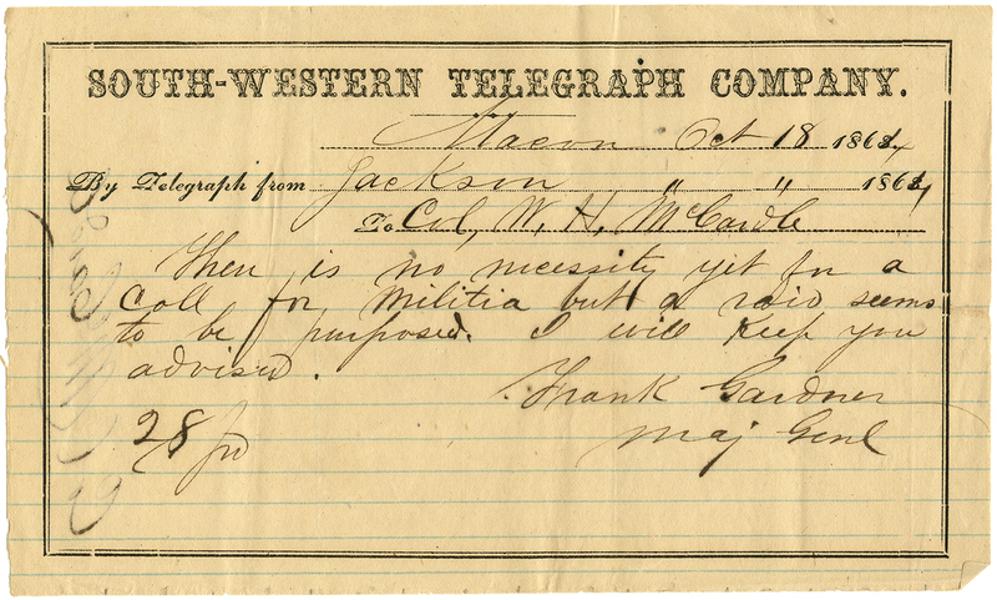 SOUTH-WESTERN TELEGRAPH COMPANY.
Macon Oct 18 1864
By Telegraph from Jackson " " 1864
To Col, W. H, McCardle
There is no necessity yet for a
Call for Militia but a raid seems
to be purposed. I will Keep you
advised.
Frank Gardner
Maj Genl
28